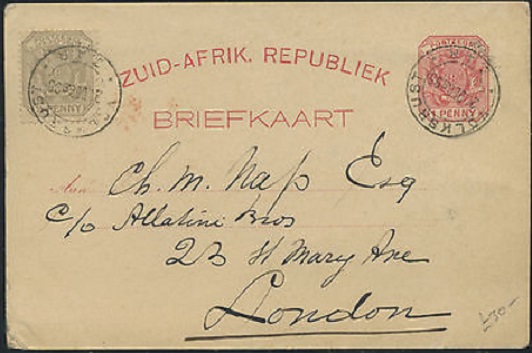 ZUID-AFRIK. REPUBLIEK
BRIEFKAART
PENNY
PENNY
VOLKSRUST
Aan Ch. M. Nap Esq
c/o Allatini Bros
23 St Mary Axe
London
£30-